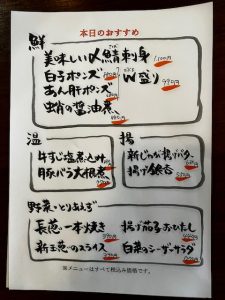 本日のおすすめ
鮮
美味しい〆鯖刺身
白子ポンズ
W盛り
あん肝ポンズ
虫蛸の醤油煮
温
牛すじ塩煮込み
豚バラ大根煮
揚
新じゃが揚げバター
揚げ銀杏
野菜・とりあえず
長葱一本火焼き
揚げ茄子おひたし
新玉葱のスライス
白菜のシーザーサラダ
※メニューはすべて税込み価格です。